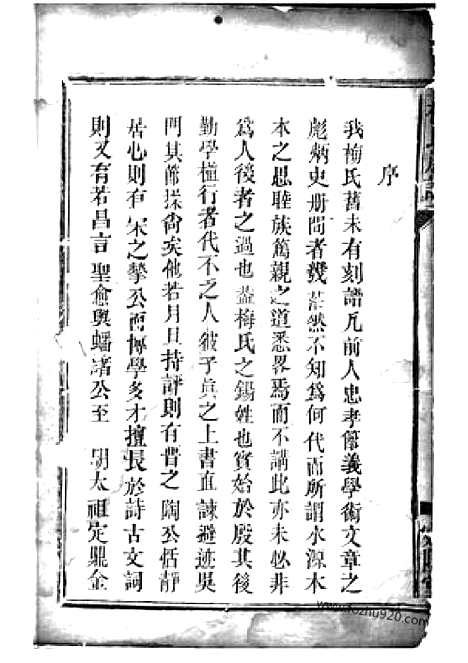 序
我梅氏舊未有刻譜凡前人忠孝節義學術文章之
彪炳史册問者幾茫然不知為何代而所謂水源木
本之思睦族篤親之道悉畧焉而不講此亦未必非
為人後者之過也蓋梅氏之錫姓也實始於殷其後
勤學植行者代不之人彼子真之上書直諫避迹吳
門其節操尚矣他若月旦持評則有晋之 陶公恬靜
居心則有 宋之摯公而博學多才擅長於詩古文詞
則又有若昌言 聖愈與蟠渚公至 明太祖定鼎金
www.fozhu920.com